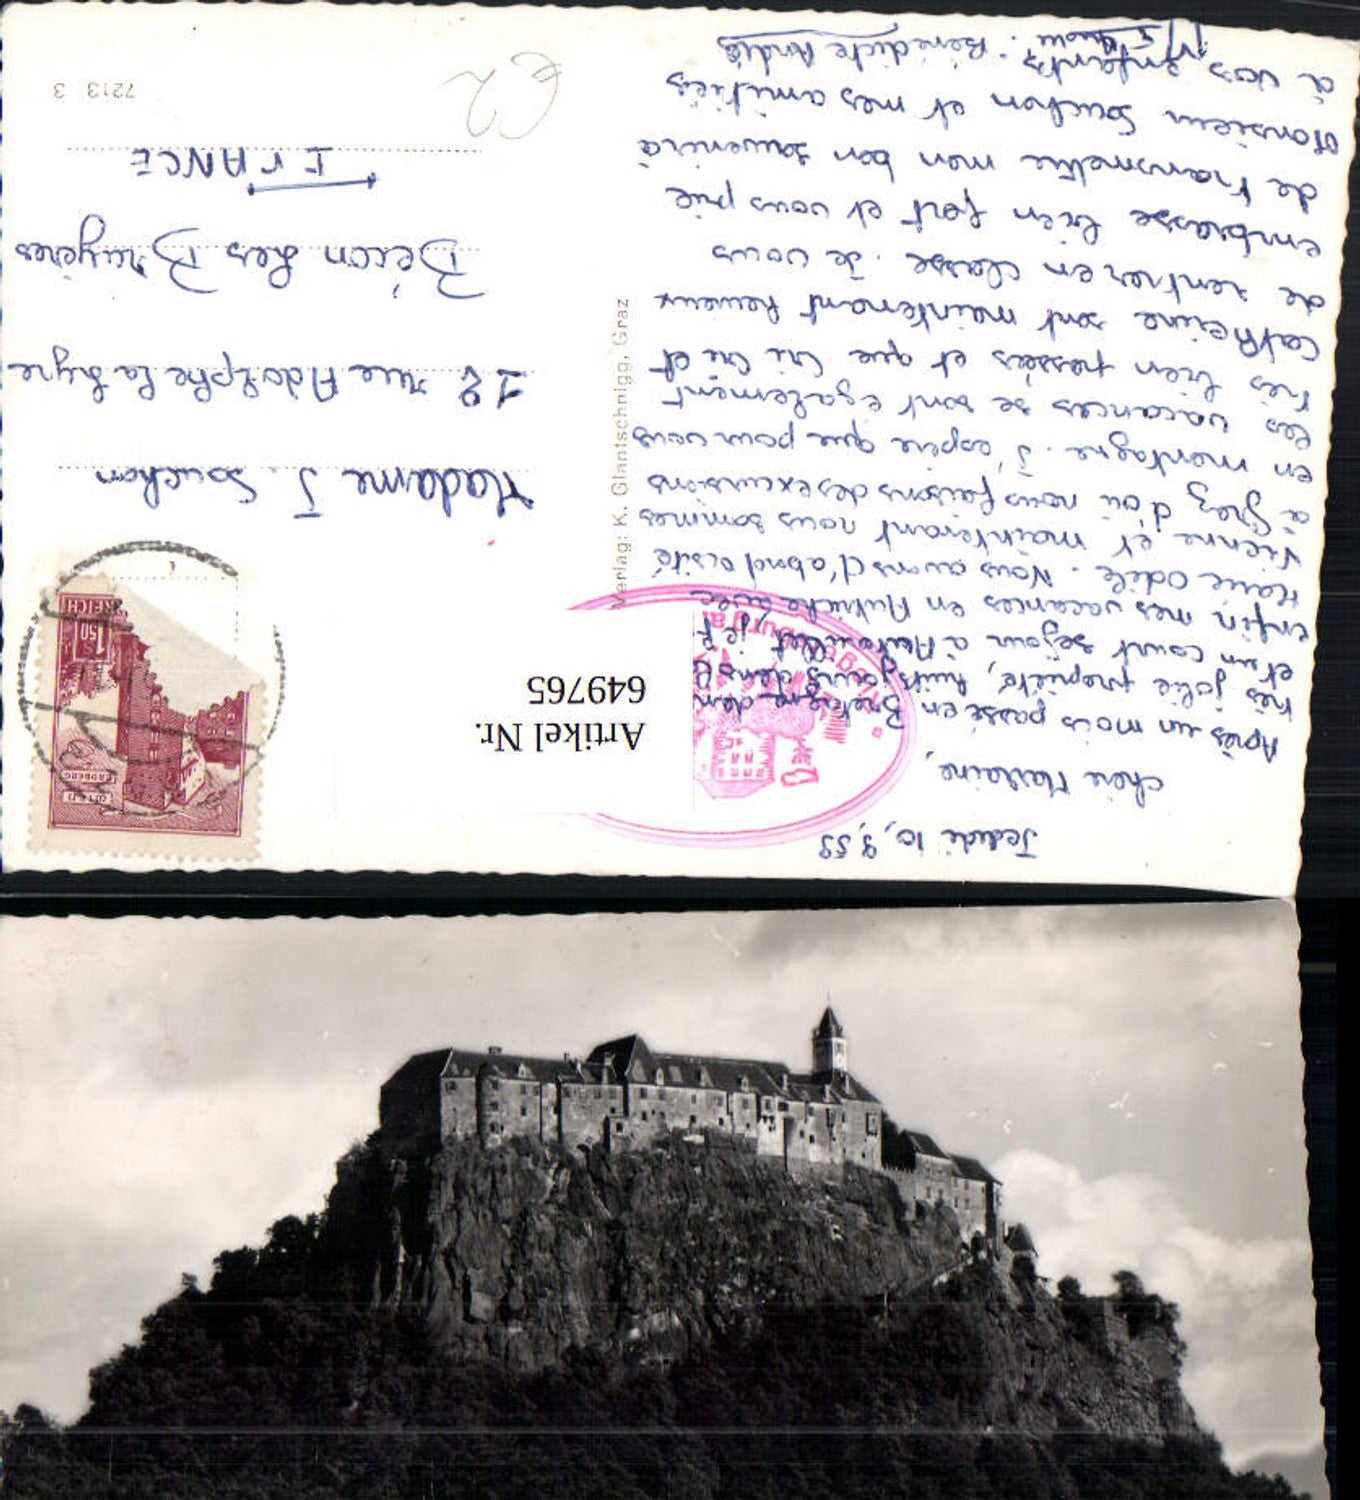 Jeudi 10, 9, 59
Chère Madame,
Après un mois passé en Bretagne dans
très jolie propriété, huit jours dans
et un court séjour à, je
enfin mes vacances en Autriche avec
Marie Odile. Nous avons d'abord visité
Vienne et maintenant nous sommes
à Graz d'où nous faisons des excursions
en montagne. J'espère que pour vous
les vacances se sont également
très bien passées et que et
Catherine sont maintenant heureux
de rentrer en classe. Je vous
embrasse bien fort et vous prie
de transmettre mon bon souvenir à
Monsieur Souchon et mes amitiés
à vos enfants. Bénédicte
Verlag: K. Glantschnigg, Graz
Artikel Nr.
649765
REICH
S 1.50
ERDBERG
Madame J. Souchon
12 rue Adolphe La Lyre
Bécon Les Bruyères
FRANCE
€2
7213 3